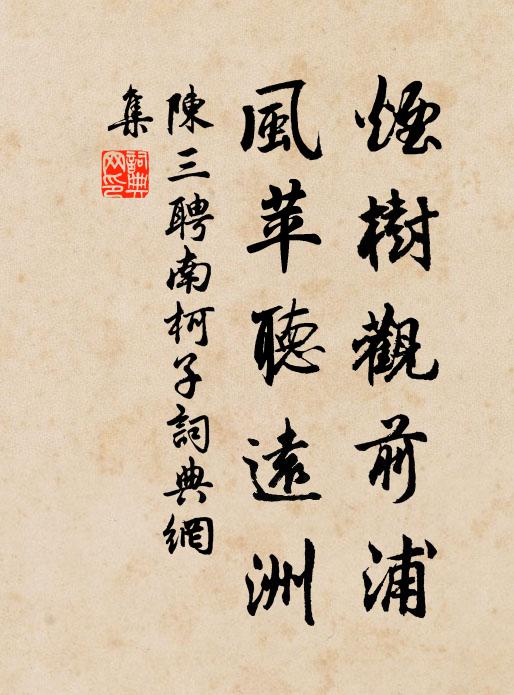 煙樹觀前浦
風苹聽遠洲
陳三聘南柯子詞典網
集
詞典
网印